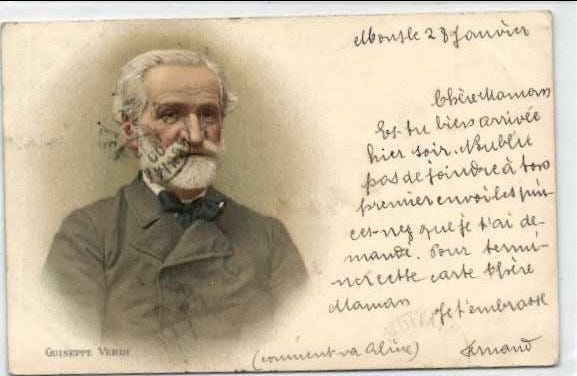 Mons le 28 Janvier
Chère Maman
Es-tu bien arrivée
hier soir. N'oublie
pas de joindre à ton
premier envoi les pin-
ces-nez que je t'ai de-
mandé. Pour termi-
ner cette carte Chère
Maman Je t'embrasse
(comment va Aline) Fernand
GUISEPPE VERDI